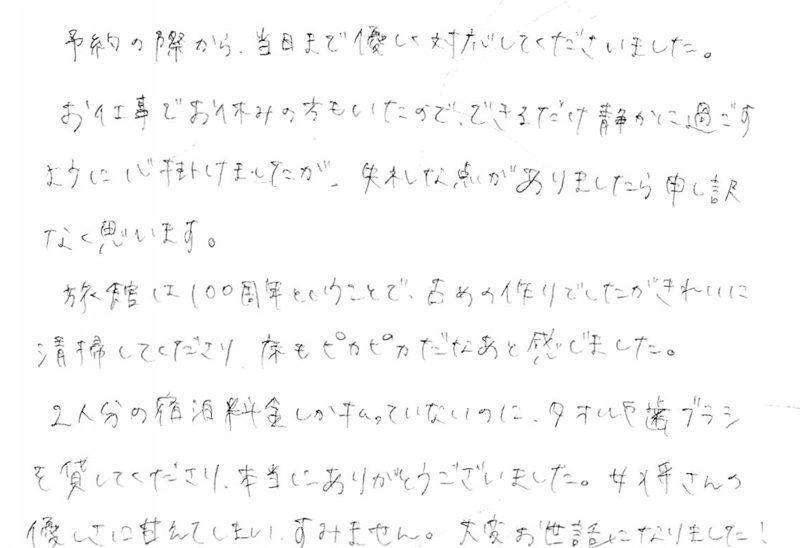 予約の際から、当日まで優しく対応してくださいました。
お仕事でお休みの方もいたので、できるだけ静かに過ごす
ように心掛けましたが、失礼な点がありましたら申し訳
なく思います。
旅館は100周年ということで、古めの作りでしたがきれいに
清掃してくださり、床もピカピカだなあと感じました。
2人分の宿泊料金しか払っていないのに、タオルや歯ブラシ
を貸してくださり、本当にありがとうございました。女将さんの
優しさに甘えてしまい、すみません。大変お世話になりました!